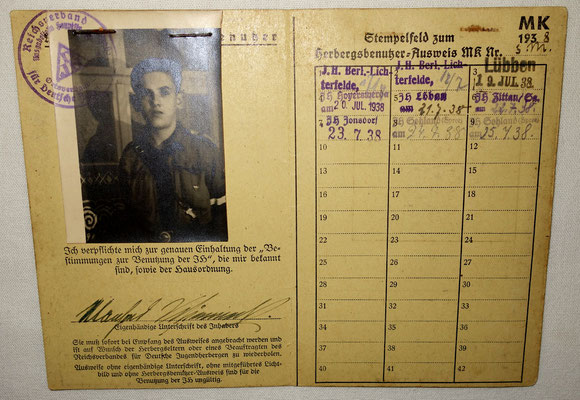 Reichsverband
für Deutsche
nutzer
Ich verpflichte mich zur genauen Einhaltung der „Be-
stimmungen zur Benutzung der JH", die mir bekannt
sind, sowie der Hausordnung.
Eigenhändige Unterschrift des Inhabers
Sie muß sofort bei Empfang des Ausweises angebracht werden und
ist auf Wunsch der Herbergseltern oder eines Beauftragten des
Reichsverbandes für Deutsche Jugendherbergen zu wiederholen.
Ausweise ohne eigenhändige Unterschrift, ohne mitgeführtes Licht-
bild und ohne Herbergsbenutzer-Ausweis sind für die
Benutzung der JH ungültig.
MK
Stempelfeld zum 1938
Herbergsbenutzer-Ausweis MK Nr.
J.H. Berl.-Lich-
terfelde,
J.H. Berl. Lich-
terfelde,
3
Lübben
19. JUL. 38
JH Hoyerswerda
am 20 JUL 1938
JH Löbau
am 21.7.38
JH Zittau/Sa.
JH Jonsdorf
23.7.38
JH Sohland
am 24.7.38
9
JH Sohland
am 25.7.38
10 11 12
13 14 15
16 17 18
19 20 21
22 23 24
25 26 27
28 29 30
31 32 33
34 35 36
37 38 39
40 41 42